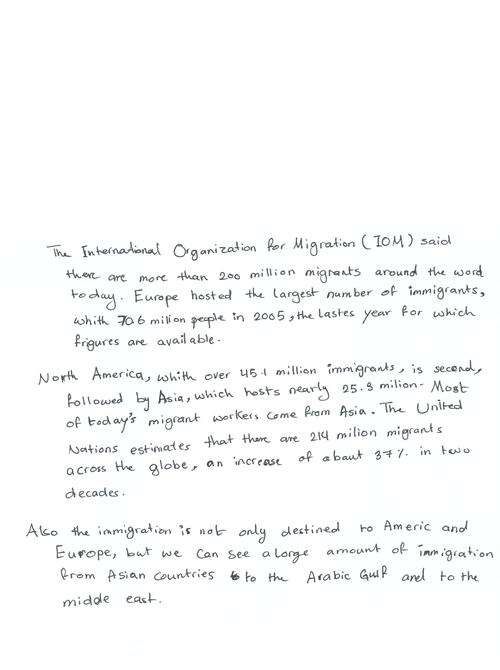 The International Organization for Migration (IOM) said
there are more than 200 million migrants around the word
today. Europe hosted the largest number of immigrants,
whith 70.6 milion people in 2005, the lastes year for which
frigures are available.
North America, whith over 45.1 million immigrants, is second,
followed by Asia, which hosts nearly 25.3 milion. Most
of today's migrant workers come from Asia. The United
Nations estimates that there are 214 milion migrants
across the globe, an increase of about 37% in two
decades.
Also the immigration is not only destined to Americ and
Europe, but we can see a large amount of immigration
from Asian countries to the Arabic Gulf and to the
midde east.